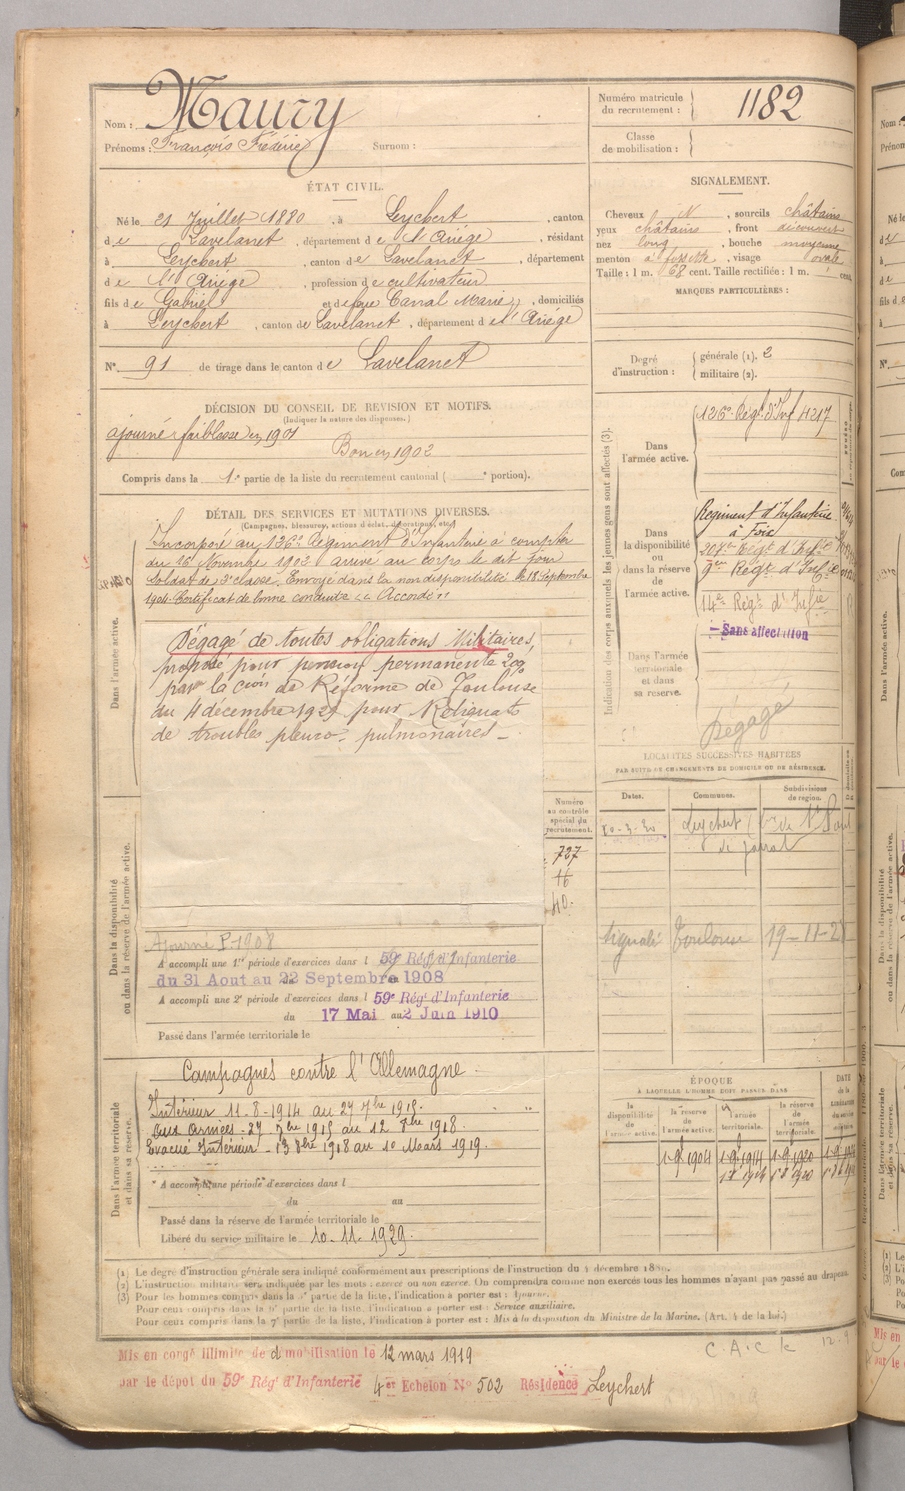 Nom : Maury
Prénoms : François Frédéric Surnom :
Numéro matricule du recrutement : 1182
Classe de mobilisation :
ÉTAT CIVIL.
Né le 21 Juillet 1880, à Leychert, canton
de Lavelanet, département de l'Ariége, résidant
à Leychert, canton de Lavelanet, département
de l'Ariége, profession de cultivateur
fils de Gabriel et de feue Carral Marie, domiciliés
à Leychert, canton de Lavelanet, département de l'Ariége
N° 91 de tirage dans le canton de Lavelanet
SIGNALEMENT.
Cheveux N, sourcils châtains
yeux châtains, front découvert
nez long, bouche moyenne
menton à fossette, visage ovale
Taille : 1 m. 68 cent. Taille rectifiée : 1 m. cent.
MARQUES PARTICULIÈRES :
Degré d'instruction : générale (1). 2
militaire (2).
DÉCISION DU CONSEIL DE REVISION ET MOTIFS.
(Indiquer la nature des dispenses.)
ajourné faiblesse en 1901
Bon en 1902
Compris dans la 1e partie de la liste du recrutement cantonal ( e portion).
DÉTAIL DES SERVICES ET MUTATIONS DIVERSES.
(Campagnes, blessures, actions d'éclat, décorations, etc.)
Incorporé au 126e Régiment d'Infanterie à compter
du 16 Novembre 1902 arrivé au corps le dit jour
Soldat de 2e classe. Envoyé dans la non disponibilité le 18 Septembre
1904. Certificat de bonne conduite "Accordé"
Dégagé de toutes obligations Militaires,
proposé pour pension permanente 20%
par la Cion de Réforme de Toulouse
du 4 décembre 1929 pour Reliquats
de troubles pleuro-pulmonaires -
Dans l'armée active.
Dans la disponibilité ou dans la réserve de l'armée active.
Dans l'armée territoriale et dans sa réserve.
Numéro au contrôle spécial du recrutement.
727
16
40.
Ajourné P. 1908
A accompli une 1re période d'exercices dans l 59e Régt d'Infanterie
du 31 Aout au 22 Septembre 1908
A accompli une 2e période d'exercices dans l 59e Régt d'Infanterie
du 17 Mai au 2 Juin 1910
Passé dans l'armée territoriale le
Campagnes contre l'Allemagne.
Intérieur 11-8-1914 au 27 7bre 1915.
Aux Armées - 27 7bre 1915 au 12 8bre 1918.
Evacué Intérieur - 13 8bre 1918 au 10 Mars 1919.
A accompli une période d'exercices dans l
du au
Passé dans la réserve de l'armée territoriale le
Libéré du service militaire le 10.11.1929.
Indication des corps auxquels les jeunes gens sont affectés (3).
Dans l'armée active.
126e Régt d'Inf 4217
Dans la disponibilité ou dans la réserve de l'armée active.
Régiment d'Infanterie
à Foix
207e Régt d'Infie
9em Régt d'Infie
14e Régt d'Infie
- Sans affectation
Dans l'armée territoriale et dans sa réserve.
Dégagé
LOCALITÉS SUCCESSIVES HABITÉES
PAR SUITE DE CHANGEMENTS DE DOMICILE OU DE RÉSIDENCE.
Dates. Communes. Subdivisions de région.
Leychert
signalé Toulouse 19-11-28
ÉPOQUE
À LAQUELLE L'HOMME DOIT PASSER DANS
la disponibilité de l'armée active. la réserve de l'armée active. l'armée territoriale. la réserve de l'armée territoriale. DATE de la libération du service militaire.
1-9-1904 1-9-1914 1-9-1920
(1) Le degré d'instruction générale sera indiqué conformément aux prescriptions de l'instruction du 4 décembre
(2) L'instruction militaire sera indiquée par les mots : exercé ou non exercé. On comprendra comme non exercés tous les hommes n'ayant pas passé au drapeau.
(3) Pour les hommes compris dans la partie de la liste, l'indication à porter est : Ajourné.
Pour ceux compris dans la 6e partie de la liste, l'indication à porter est : Service auxiliaire.
Pour ceux compris dans la 7e partie de la liste, l'indication à porter est : Mis à la disposition du Ministre de la Marine. (Art. 4 de la loi.)
Mis en congé illimité de démobilisation le 12 mars 1919
par le dépôt du 59e Régt d'Infanterie 4e Echelon N° 502 Résidence Leychert